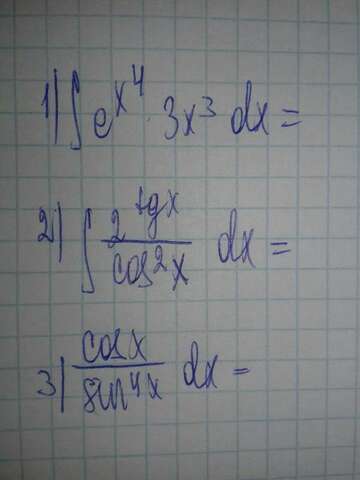 1) ∫ e^{x^4} · 3x³ dx =
2) ∫ \frac{2^{tgx}}{cos²x} dx =
3) \frac{cosx}{sin⁴x} dx =